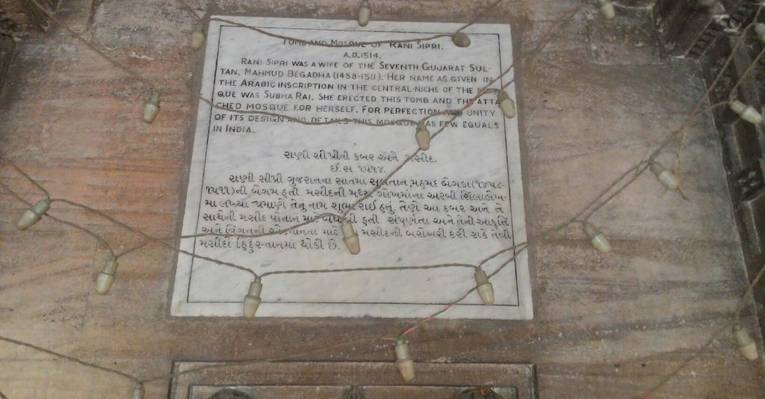 TOMB AND MOSQUE OF RANI SIPRI.
A.D. 1514.
RANI SIPRI WAS A WIFE OF THE SEVENTH GUJARAT SUL-
TAN, MAHMUD BEGADHA (1458-1511). HER NAME AS GIVEN IN
THE ARABIC INSCRIPTION IN THE CENTRAL NICHE OF THE
QUE WAS SUBHA RAI. SHE ERECTED THIS TOMB AND THE ATTA-
CHED MOSQUE FOR HERSELF. FOR PERFECTION AND UNITY
OF ITS DESIGN AND DETAILS THIS MOSQUE HAS FEW EQUALS
IN INDIA.
રાણી સીપ્રીની કબર અને મસીદ.
ઈ.સ ૧૫૧૪.
રાણી સીપ્રી ગુજરાતના સાતમા સુલતાન મહમદ બેગડા (૧૪૫૮-
૧૫૧૧) ની બેગમ હતી. મસીદની મધ્ય ગોખમાંના અરબી શિલાલેખ-
માં લખ્યા પ્રમાણે તેનું નામ શુભા રાઈ હતું. તેણે આ કબર અને તે
સાથેની મસીદ પોતાને માટે બંધાવી હતી. સંપૂર્ણતા અને તેની આકૃતિ
અને વિગતની માટે મસીદની બરોબરી કરી શકે તેવી
મસીદો હિંદુસ્તાનમાં થોડી છે.